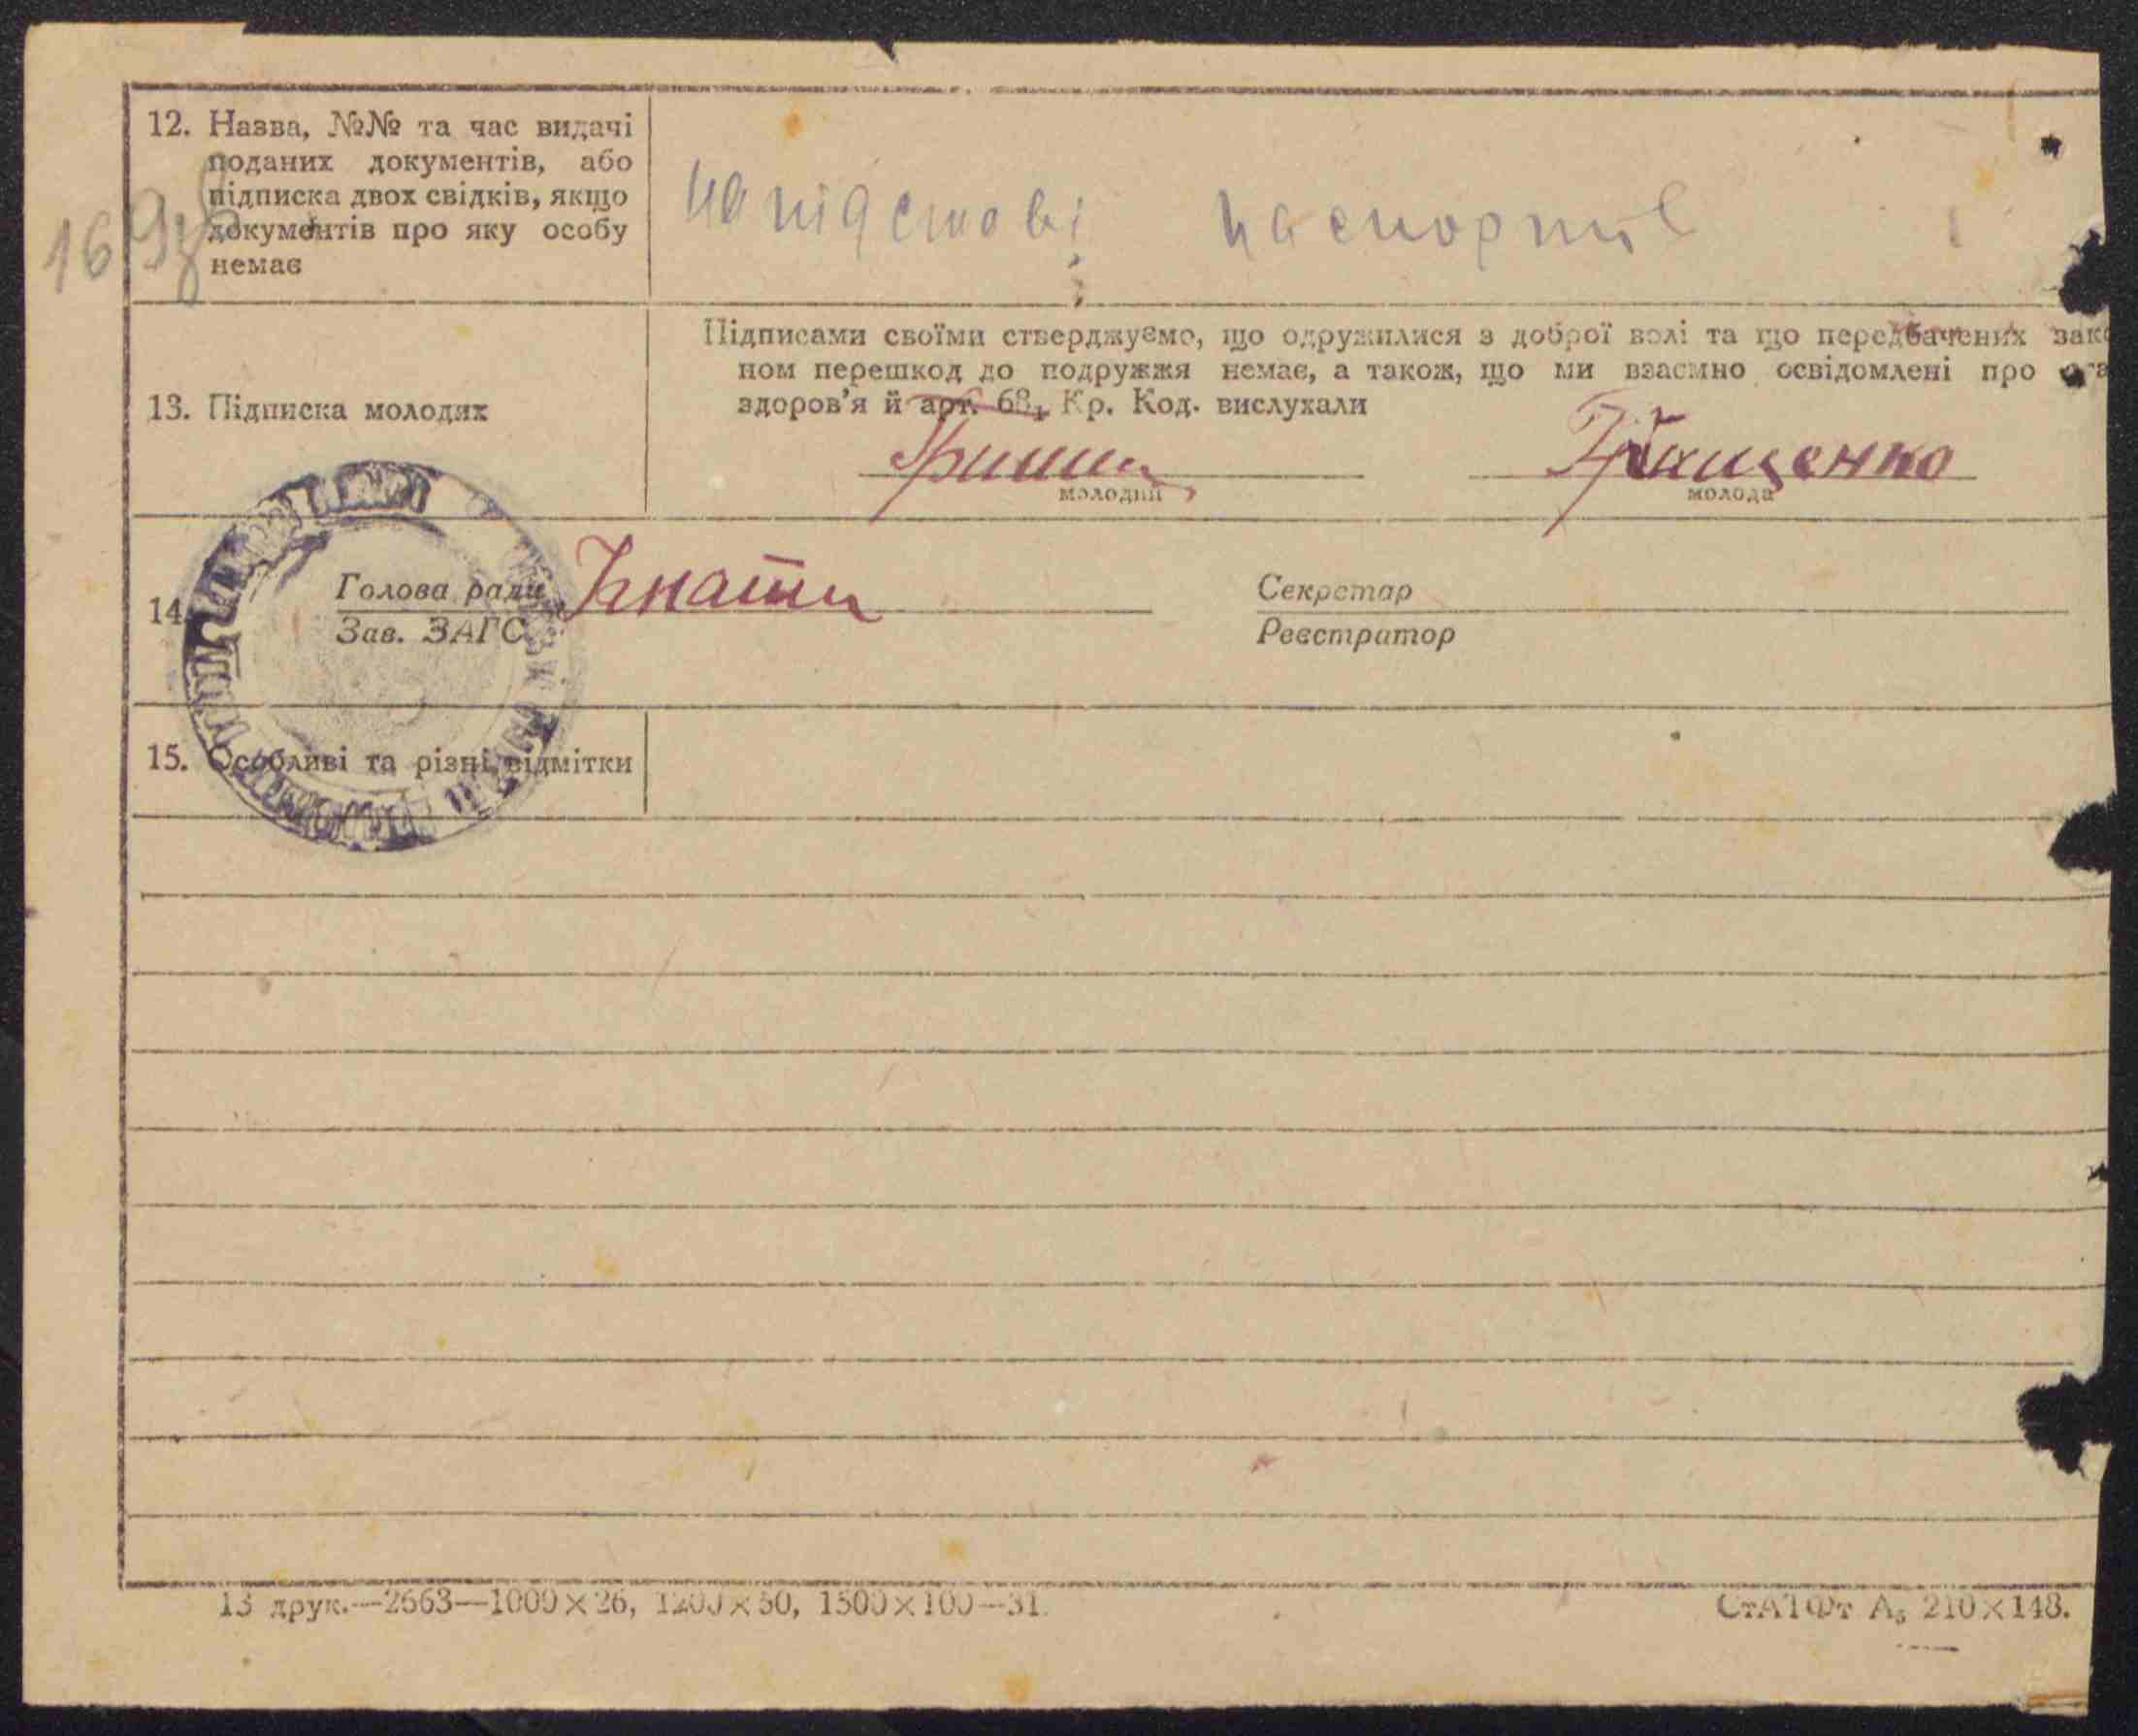 12. Назва, №№ та час видачі
поданих документів, або
підписка двох свідків, якщо
документів про яку особу
немає
на підставі паспортів
13. Підписка молодих
Підписами своїми стверджуємо, що одружилися з доброї волі та що передбачених зако
ном перешкод до подружжя немає, а також, що ми взаємно освідомлені про ста
здоров'я й арт. 68, Кр. Код. вислухали
молодий
молода
14.
Голова ради
Зав. ЗАГС
Секретар
Реєстратор
15. Особливі та різні відмітки
13 друк.—2663—1000×26, 1200×50, 1500×100—31.
СтАТФт А₅ 210×148.